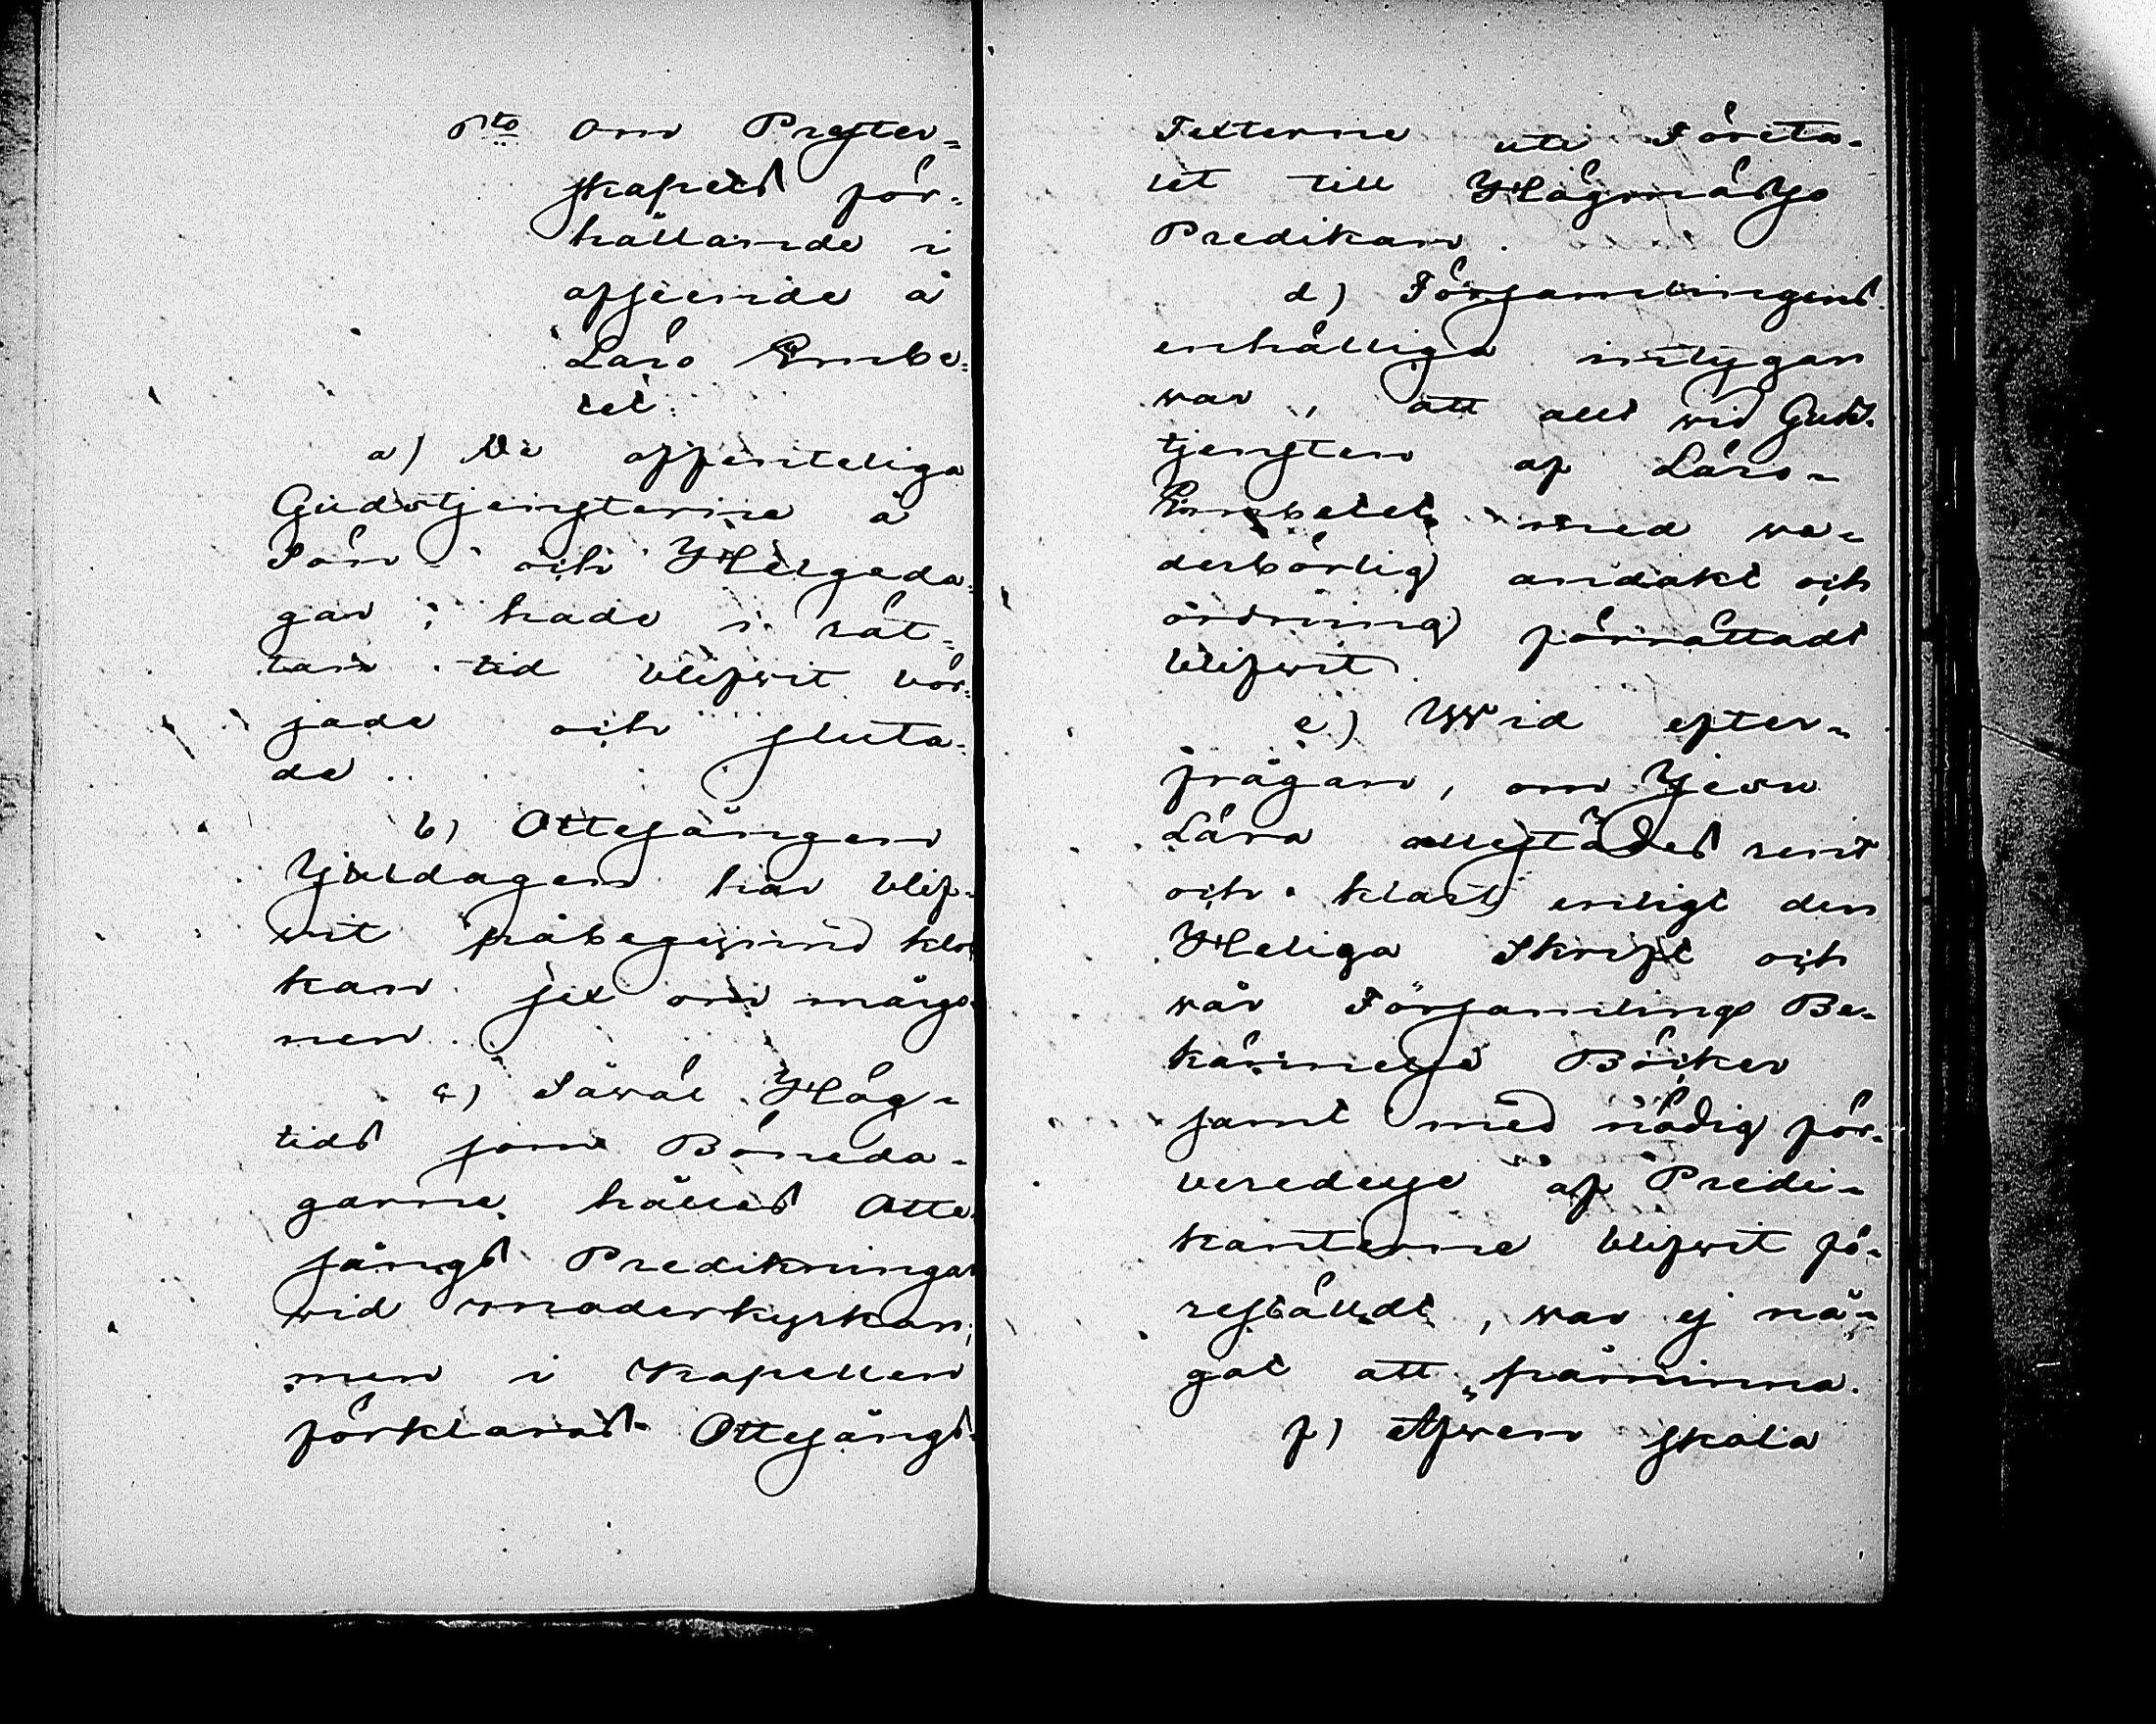 1to Om Prester=
skapets för=
hållande i
afseende å
Läro Embe=
tet.
a) De offenteliga
Gudstjensterne å
Sön- och Helgeda=
gar, hade i rät=
tan tid blifwit bör=
jade och sluta=
de.
b) Ottesången
Juldagen har blif=
wit påbegynnd kloc
kan sex om mårgo=
nen.
c) Såwäl Hög=
tids som Böneda=
garne hålles Otte=
sångs Predikningar
wid moderkyrkan;
men i Kapellen
förklaras Ottesångs=
Texterne uti Företa=
let till Högmässo
Predikan.
d) Församlingens
enhälliga intygan
war, att allt wid Guds=
tjensten af Läro=
Embetet med we=
derbörlig andakt och
ordning förrättadt
blifwit.
e) Wid efter=
frågan, om Jesu
Lära allestädes rent
och klart enligt den
Heliga Skrift och
wår Församlings Be=
kännelse Böcker
samt med nödig för=
beredelse af Predi=
kanterne blifwit fö=
reställdt, war ej nå=
got att påminna.
f) Afwen skola